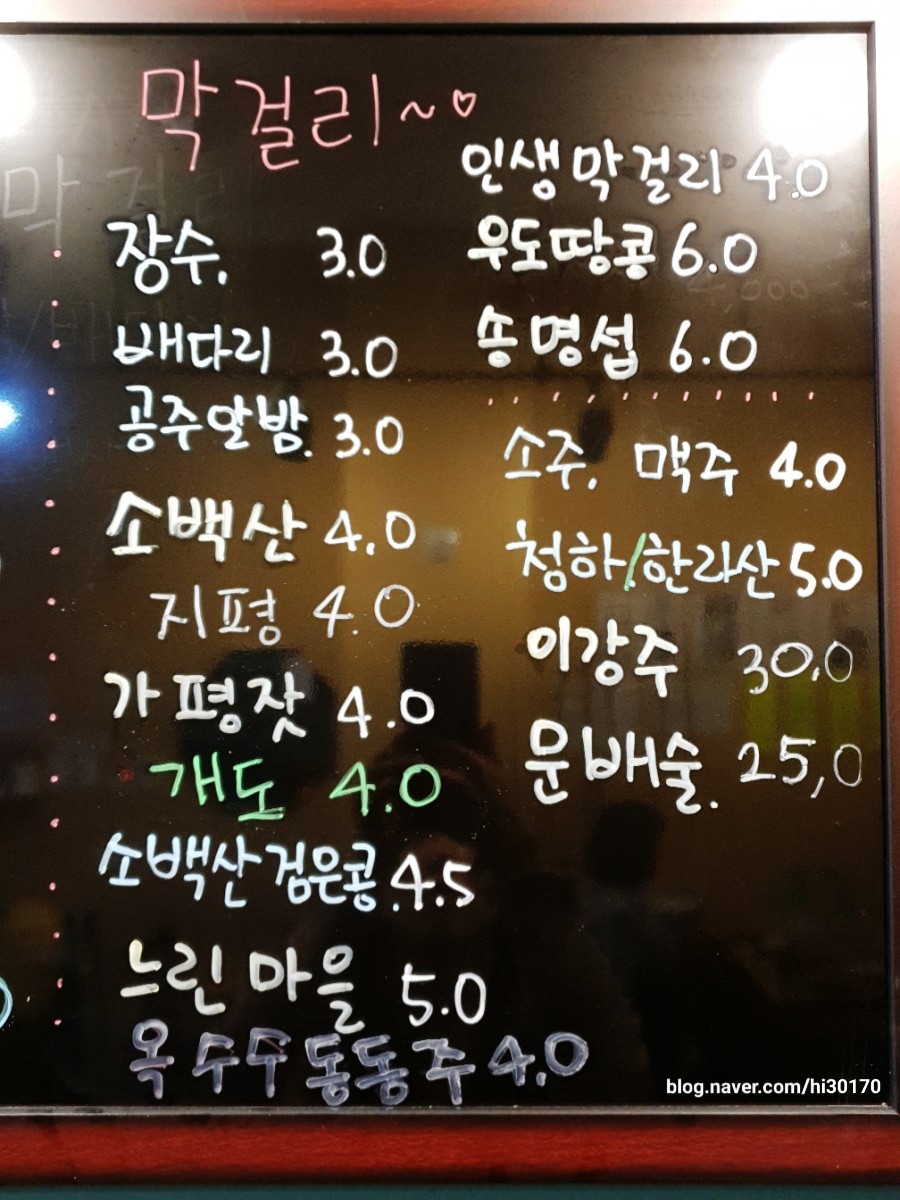 막걸리~♡
장수. 3.0
배다리 3.0
공주알밤. 3.0
소백산 4.0
지평 4.0
가평잣 4.0
개도 4.0
소백산검은콩 4.5
느린마을 5.0
옥수수동동주 4.0
인생막걸리 4.0
우도땅콩 6.0
송명섭 6.0
소주. 맥주 4.0
청하/한라산 5.0
이강주 30,0
문배술. 25,0
blog.naver.com/hi30170